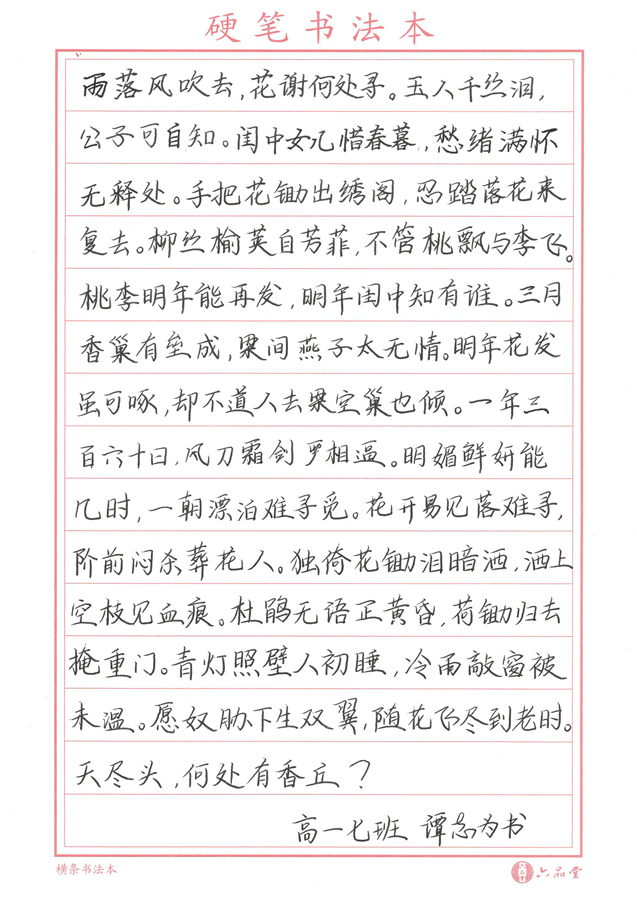 硬笔书法本
雨落风吹去,花谢何处寻。玉人千丝泪,
公子可自知。闺中女儿惜春暮,愁绪满怀
无释处。手把花锄出绣阁,忍踏落花来
复去。柳丝榆荚自芳菲,不管桃飘与李飞。
桃李明年能再发,明年闺中知有谁。三月
香巢有垒成,梁间燕子太无情。明年花发
虽可啄,却不道人去梁空巢也倾。一年三
百六十日,风刀霜剑罗相逼。明媚鲜妍能
几时,一朝漂泊难寻觅。花开易见落难寻,
阶前闷杀葬花人。独倚花锄泪暗洒,洒上
空枝见血痕。杜鹃无语正黄昏,荷锄归去
掩重门。青灯照壁人初睡,冷雨敲窗被
未温。愿奴胁下生双翼,随花飞尽到老时。
天尽头,何处有香丘?
高一七班 谭志为书
横条书法本 六品堂